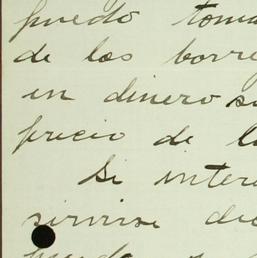 puedo toma
de los borre
en dinero su
precio de l
Si inter
sirvise di
puedo